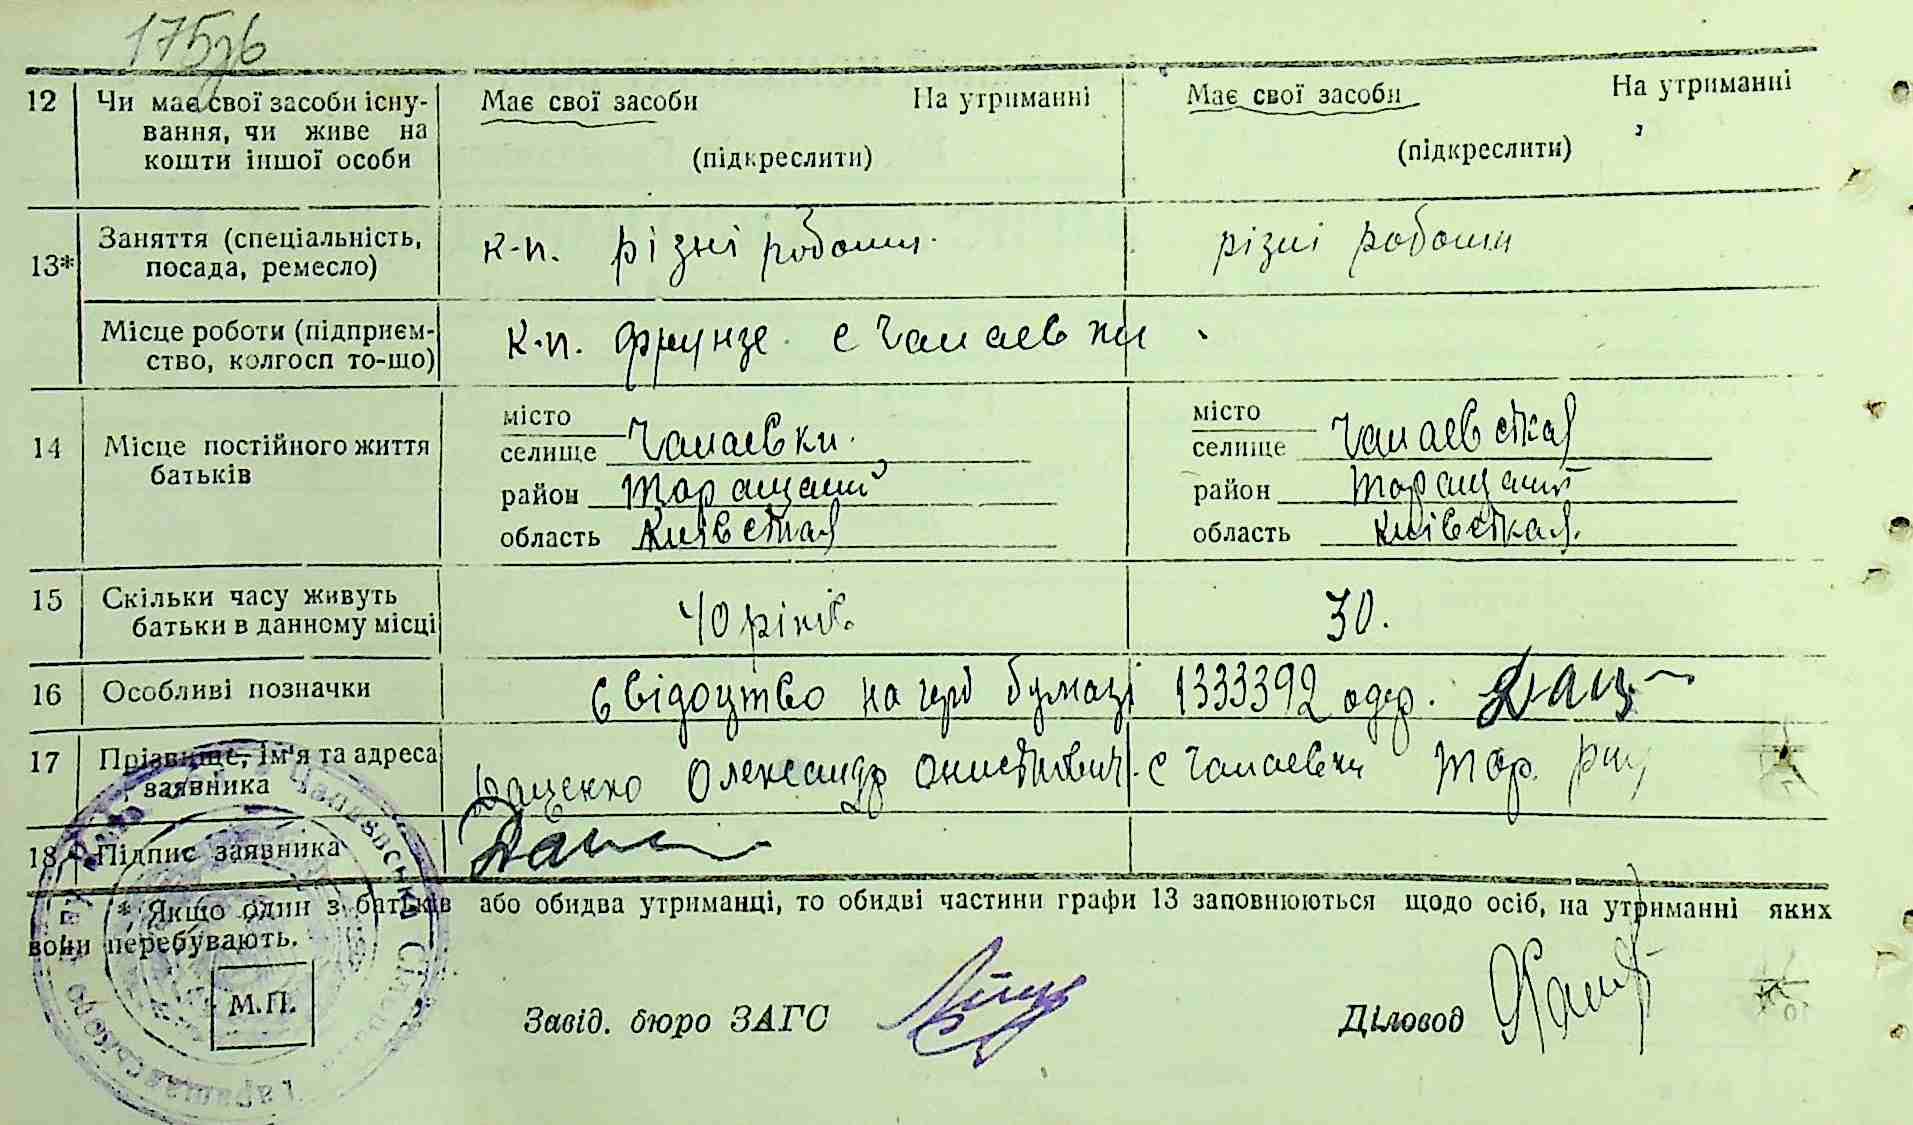 175зв
12 Чи має свої засоби існу- Має свої засоби На утриманні Має свої засоби На утриманні
вання, чи живе на
кошти іншої особи (підкреслити) (підкреслити)
13* Заняття (спеціальність, к-п. різні роботи. різні роботи
посада, ремесло)
Місце роботи (підприєм- к-п. Фрунзе с Чапаевки
ство, колгосп то-що)
14 Місце постійного життя батьків
місто
селище Чапаевки.
район Таращаний
область Київсткая
місто
селище Чапаевсткая
район Таращаний
область Київсткая.
15 Скільки часу живуть 40 років. 30.
батьки в данному місці
16 Особливі позначки Свідоцтво на герб бумазі 1333392 одер. Дац
17 Прізвище, ім'я та адреса
заявника Даценко Олександр Онистович. с Чапаевки Тар. р-ну
18 Підпис заявника Дац
* Якщо один з батьків або обидва утриманці, то обидві частини графи 13 заповнюються щодо осіб, на утриманні яких
вони перебувають.
М.П.
Завід. бюро ЗАГС Діловод